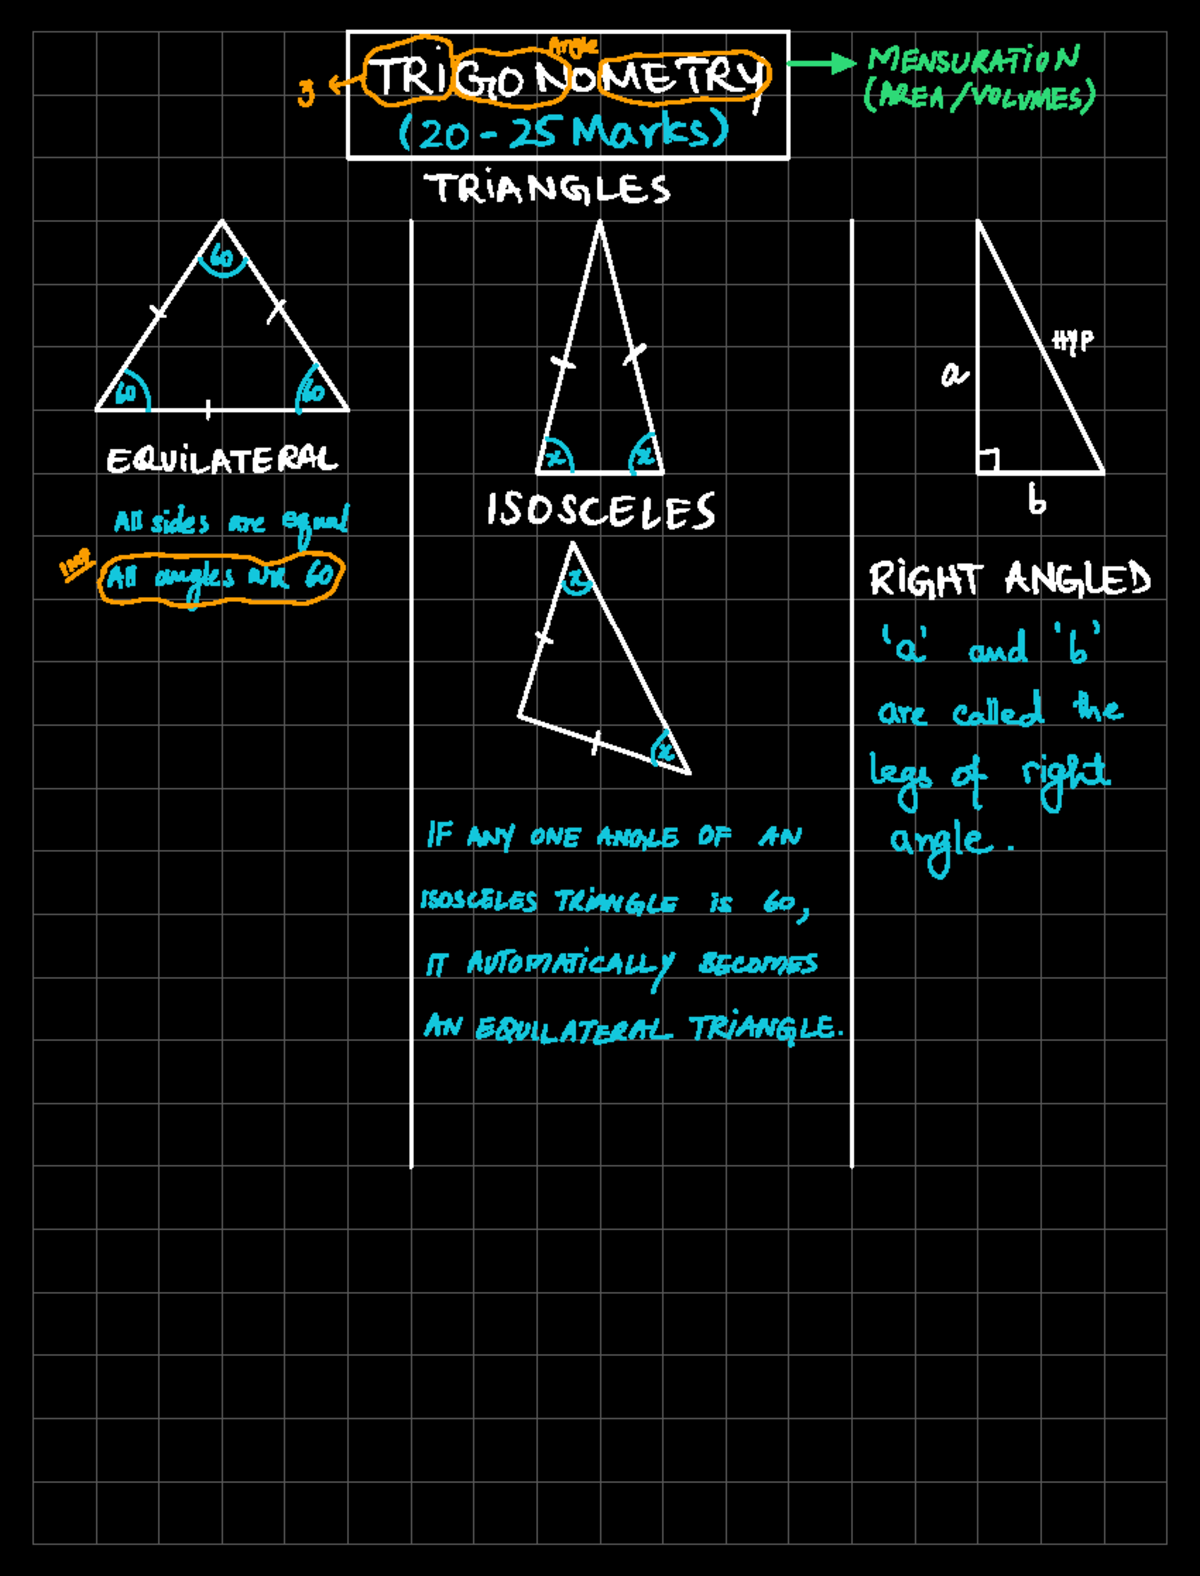 Angle
3 TRIGONOMETRY
(20-25 Marks)
MENSURATION
(AREA/VOLUMES)
TRIANGLES
60
60 60
EQUILATERAL
All sides are equal
IMP
All angles are 60
x x
ISOSCELES
x
x
IF ANY ONE ANGLE OF AN
ISOSCELES TRIANGLE is 60,
IT AUTOMATICALLY BECOMES
AN EQUILATERAL TRIANGLE.
HYP
a
b
RIGHT ANGLED
'a' and 'b'
are called the
legs of right
angle.